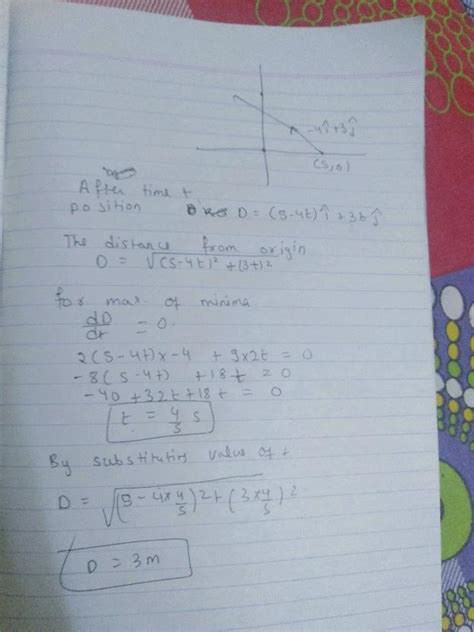 -4î+3ĵ
(5,0)
After time t
position D = (5-4t)î + 3tĵ
The distance from origin
D = √(5-4t)² + (3t)²
for max. of minima
dD/dt = 0
2(5-4t)x-4 + 9x2t = 0
-8(5-4t) + 18t = 0
-40+32t+18t = 0
t = 4/5 s
By substituting value of t
D = √(5-4x4/5)²+(3x4/5)²
D = 3m